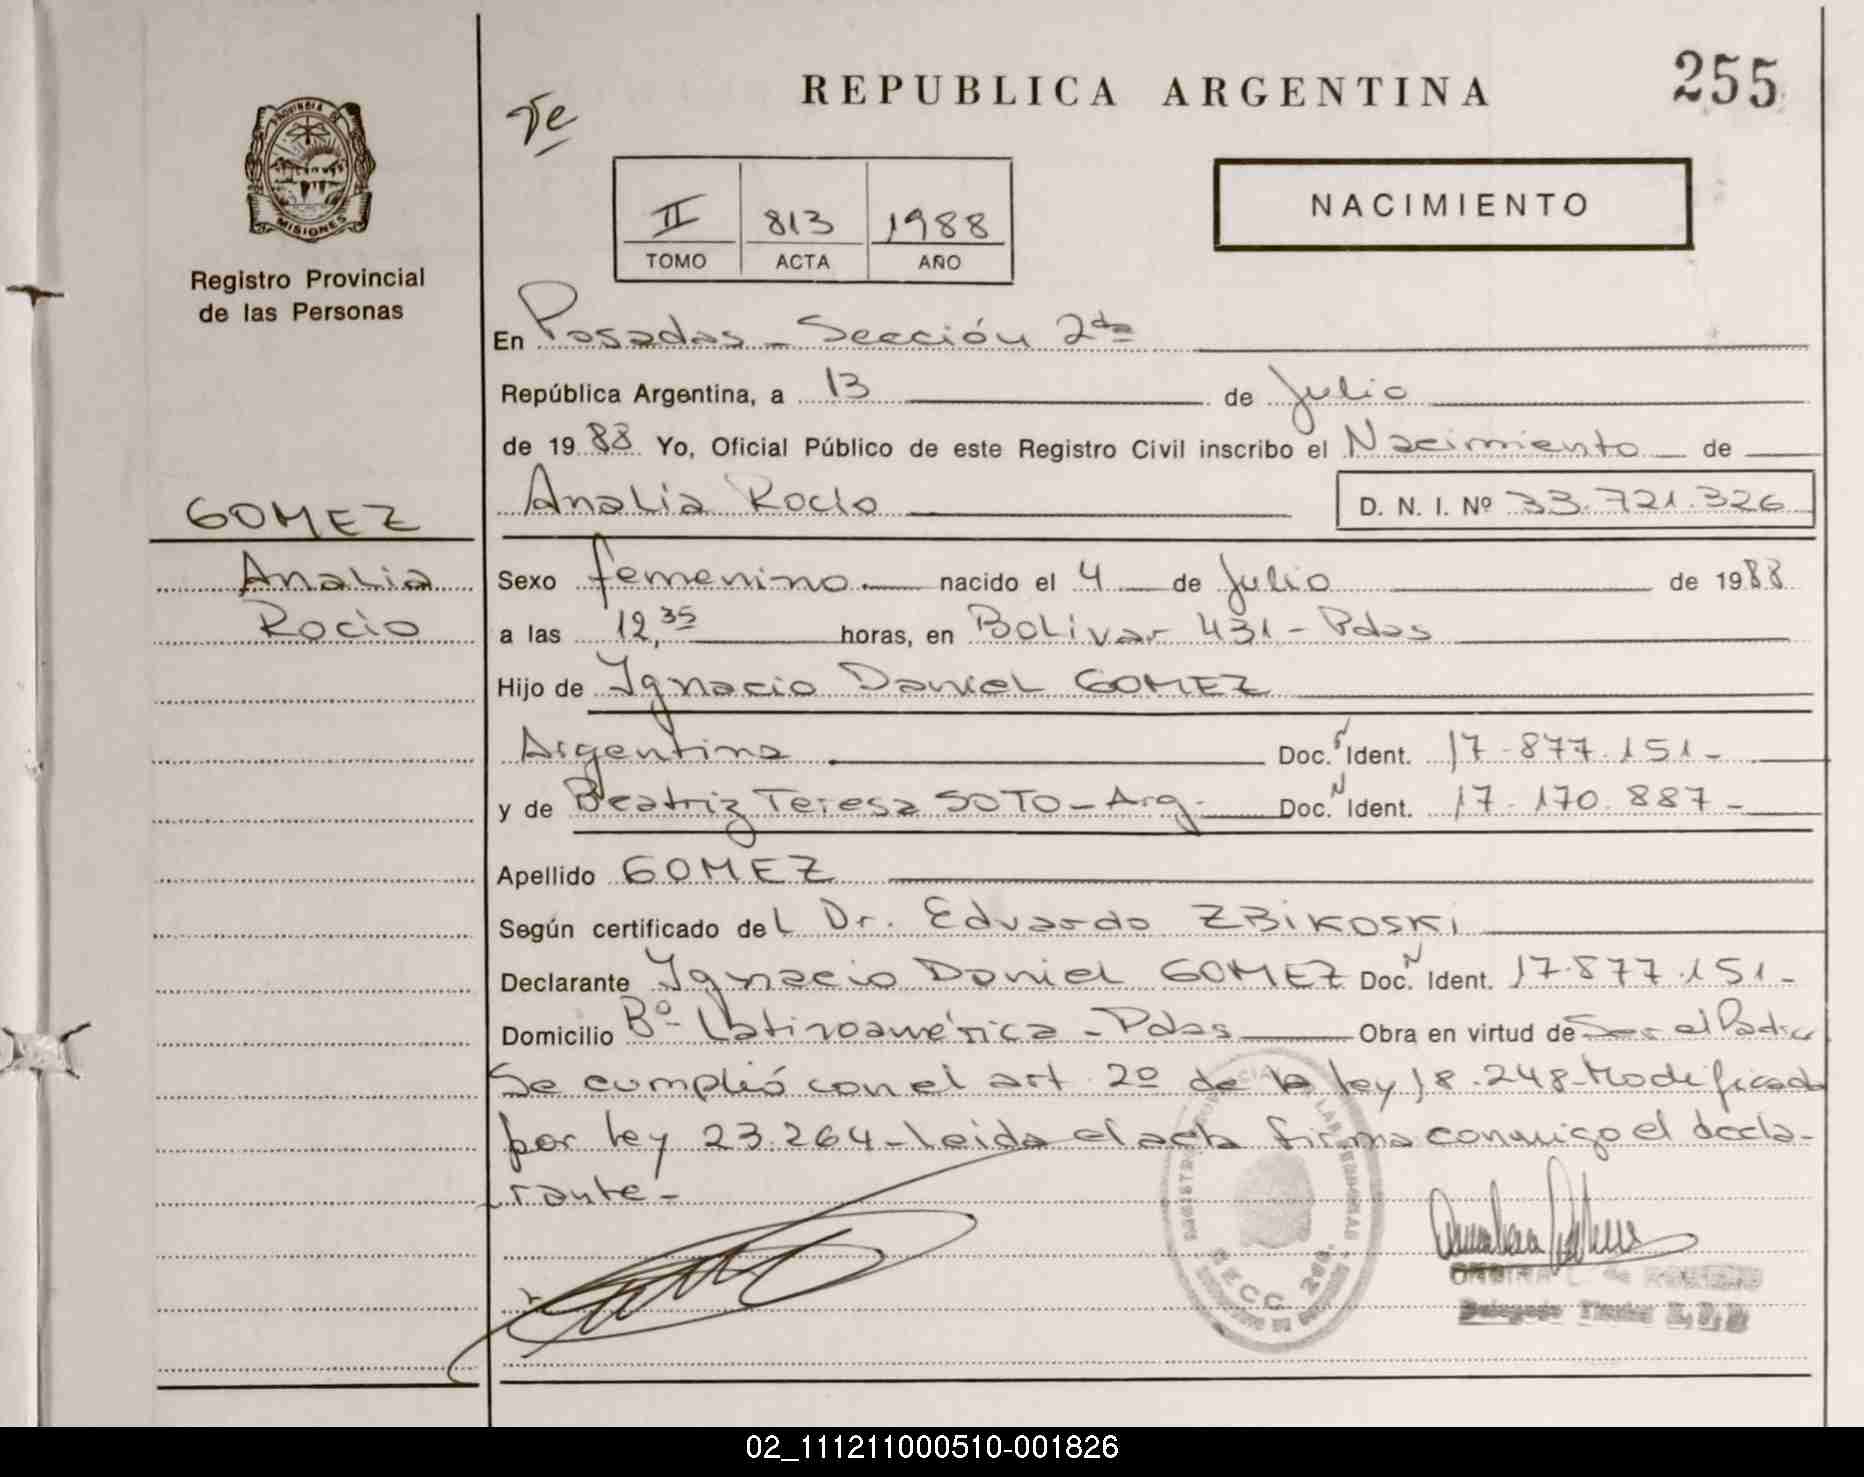 REPUBLICA ARGENTINA
255
PROVINCIA DE
MISIONES
Registro Provincial
de las Personas
II 813 1988
TOMO ACTA AÑO
NACIMIENTO
En Posadas - Sección 2da
República Argentina, a 13 de Julio
de 1988 Yo, Oficial Público de este Registro Civil inscribo el Nacimiento de
Analia Rocio D. N. I. Nº 33.721.326
GOMEZ
Analia
Rocio
Sexo femenino nacido el 4 de Julio de 1988
a las 12,35 horas, en Bolivar 431 - Pdas
Hijo de Ignacio Daniel GOMEZ
Argentina Doc. Ident. 17.877.151-
y de Beatriz Teresa SOTO - Arg. Doc. N Ident. 17.170.887-
Apellido GOMEZ
Según certificado del Dr. Eduardo ZBIKOSKI
Declarante Ignacio Daniel GOMEZ Doc. N Ident. 17.877.151-
Domicilio Bº Latinoamérica - Pdas Obra en virtud de Ser el Padre
Se cumplió con el art. 2º de la ley 18.248 - Modificado
por ley 23.264 - Leida el acta firma conmigo el decla-
rante -
SECC. 2da.
02_111211000510-001826